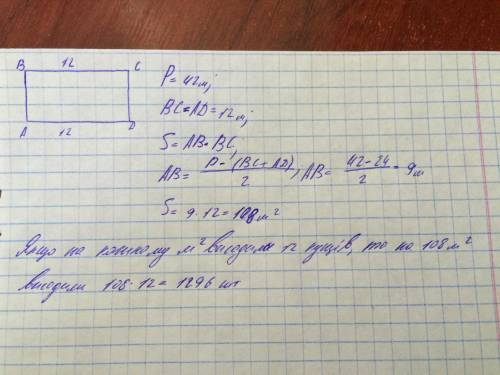 B 12 C
A 12 D
P = 42 м;
BC = AD = 12 м;
S = AB · BC,
AB = P - (BC + AD) / 2, AB = 42 - 24 / 2 = 9 м
S = 9 · 12 = 108 м²
Якщо на кожному м² висадили 12 кущів, то на 108 м²
висадили 108 · 12 = 1296 шт